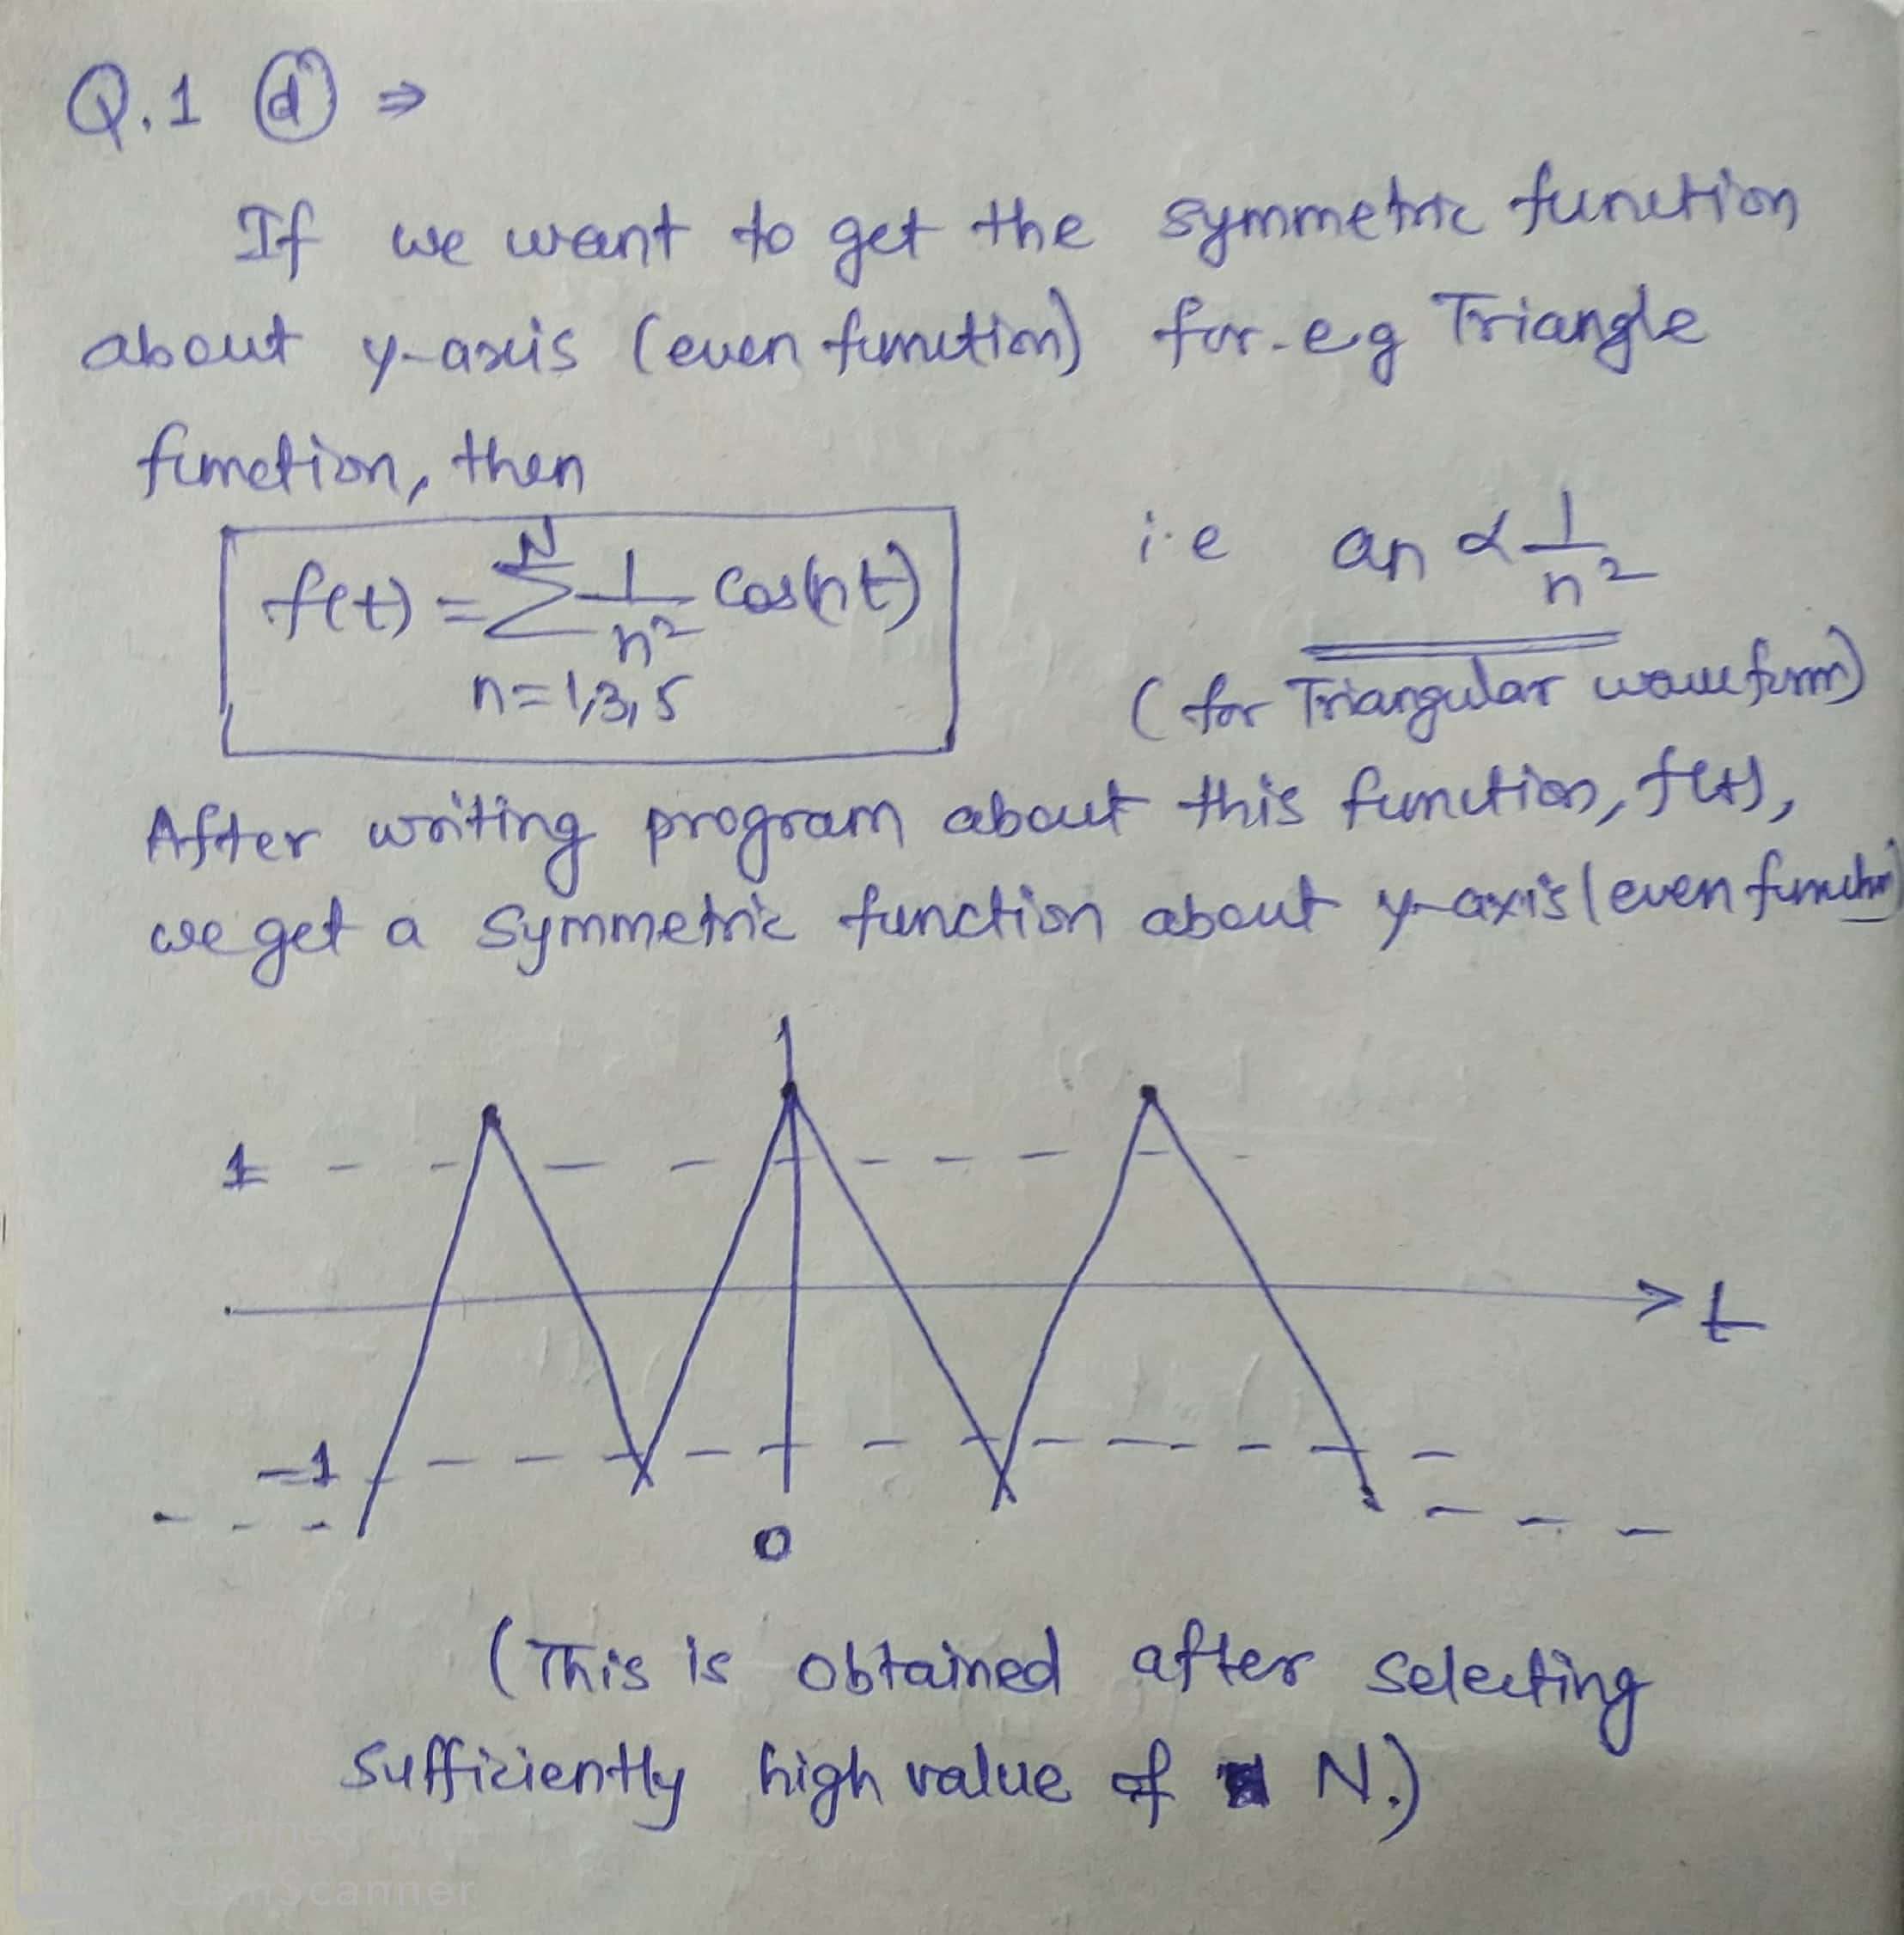 Q.1 (d) ⇒
If we want to get the symmetric function
about y-axis (even function) for e.g Triangle
function, then
f(t) = N Σ n=1,3,5 1/n² Cos(nt)
i.e an ∝ 1/n²
(for Triangular waveform)
After writing program about this function, f(t),
we get a symmetric function about y-axis (even function)
1
-1
t
0
(This is obtained after selecting
sufficiently high value of N.)
Scanned with
CamScanner